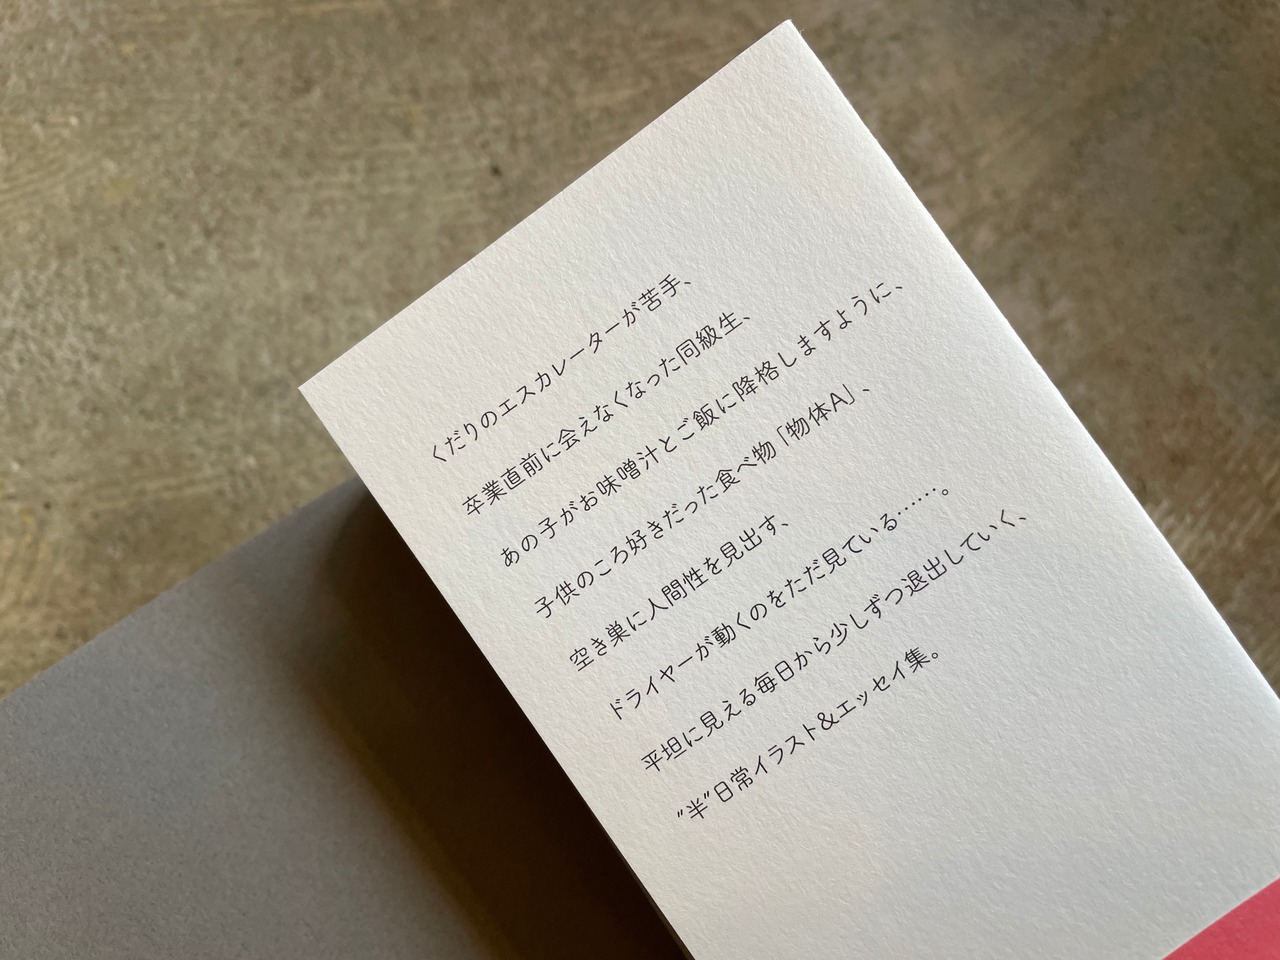 くだりのエスカレーターが苦手、
卒業直前に会えなくなった同級生、
あの子がお味噌汁とご飯に降格しますように、
子供のころ好きだった食べ物「物体A」、
空き巣に人間性を見出す、
ドライヤーが動くのをただ見ている……。
平坦に見える毎日から少しずつ退出していく、
"半"日常イラスト&エッセイ集。